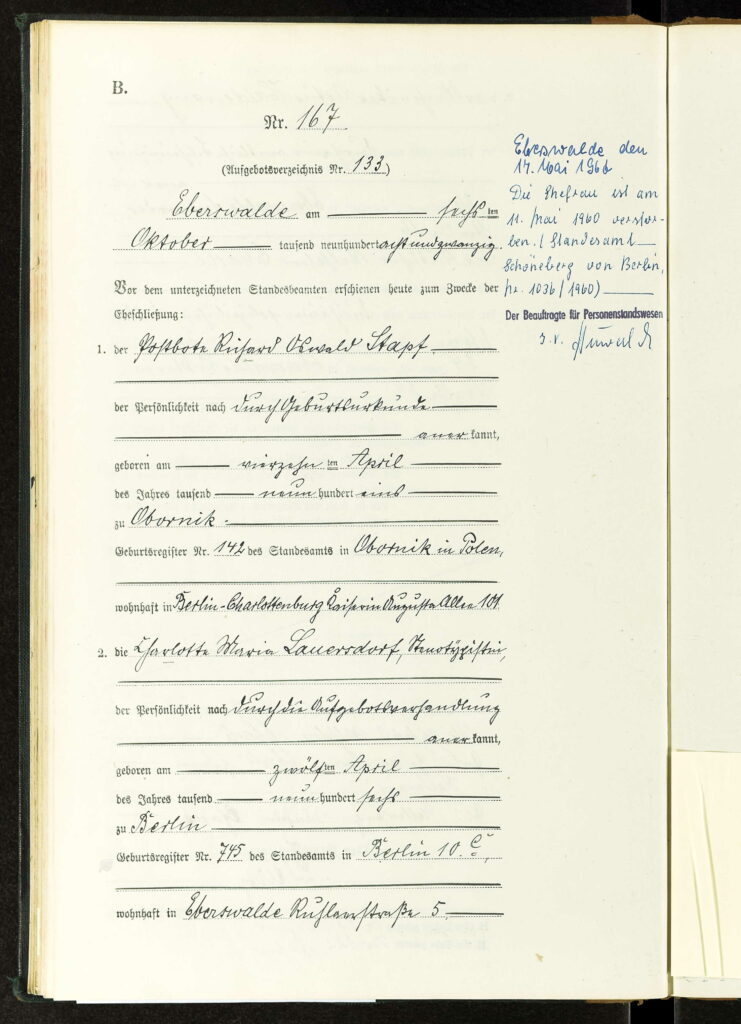 B.
Nr. 167
(Aufgebotsverzeichnis Nr. 133)
Eberswalde am sechs ten
Oktober tausend neunhundert acht und zwanzig.
Vor dem unterzeichneten Standesbeamten erschienen heute zum Zwecke der
Eheschließung:
1. der Postbote Richard Oswald Stapf
der Persönlichkeit nach durch Geburtsurkunde
aner kannt,
geboren am vierzehn ten April
des Jahres tausend neun hundert eins
zu Obornik.
Geburtsregister Nr. 142 des Standesamts in Obornik in Polen,
wohnhaft in Berlin-Charlottenburg Kaiserin Augusta Allee 101.
2. die Charlotte Maria Lauersdorf, Stenotypistin,
der Persönlichkeit nach durch die Aufgebotsverhandlung
aner kannt,
geboren am zwölf ten April
des Jahres tausend neun hundert sechs
zu Berlin
Geburtsregister Nr. 745 des Standesamts in Berlin 10. C,
wohnhaft in Eberswalde Ruhlaerstraße 5
Eberswalde den
17. Mai 1966
Die Ehefrau ist am
11. Mai 1960 verstor-
ben. (Standesamt
Schöneberg von Berlin,
Nr. 1036/1960)
Der Beauftragte für Personenstandswesen
J.V.